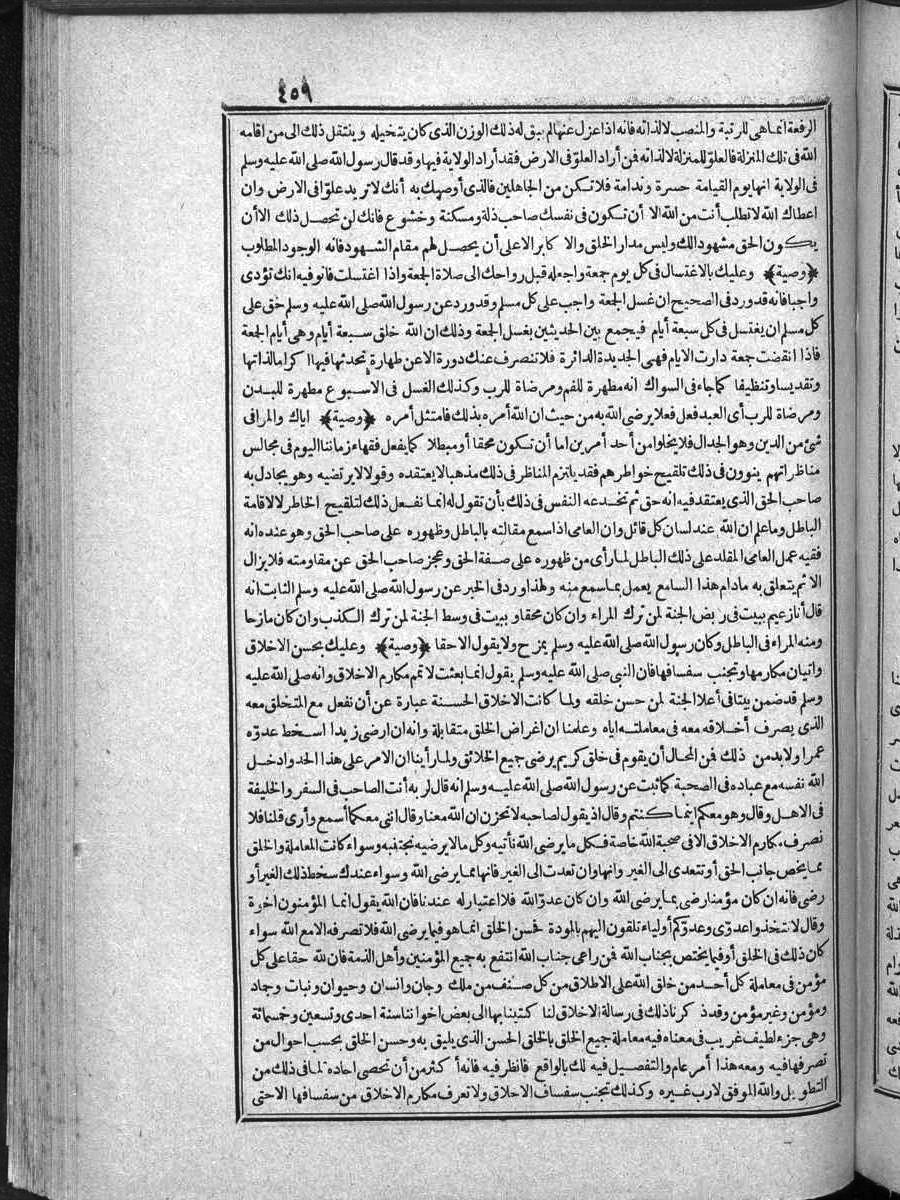 ٤٥٩
الرفعة انما هي للرتبة والمنصب لا لذاته فانه اذا عزل عنها لم يبق له ذلك الوزن الذى كان يتخيله وينتقل ذلك الى من اقامه
الله فى تلك المنزلة فالعلوّ للمنزلة لا لذاته فمن أراد العلوّ فى الارض فقد أراد الولاية فيها وقد قال رسول الله صلى الله عليه وسلم
فى الولاية انها يوم القيامة حسرة وندامة فلا تكن من الجاهلين فالذى أوصيك به أنك لا تريد علوّا فى الارض وان
اعطاك الله لا تطلب أنت من الله الا أن تكون فى نفسك صاحب ذلة ومسكنة وخشوع فانك لن تحصل ذلك الا أن
يكون الحق مشهودا لك وليس مدار الخلق والا كابر الا على أن يحصل لهم مقام الشهود فانه الوجود المطلوب
﴿وصية﴾ وعليك بالاغتسال فى كل يوم جمعة واجعله قبل رواحك الى صلاة الجمعة واذا اغتسلت فانو فيه انك تؤدى
واجبا فانه قد ورد فى الصحيح ان غسل الجمعة واجب على كل مسلم وقد ورد عن رسول الله صلى الله عليه وسلم حق على
كل مسلم ان يغتسل فى كل سبعة أيام فيجمع بين الحديثين بغسل الجمعة وذلك ان الله خلق سبعة أيام وهى أيام الجمعة
فاذا انقضت جمعة دارت الايام فهى الجديدة الدائرة فلا تنصرف عنك دورة الا عن طهارة تحدثها فيها ا كراما لذاتها
وتقديسا وتنظيفا كما جاء فى السواك انه مطهرة للفم ومرضاة للرب وكذلك الغسل فى الاسبوع مطهرة للبدن
ومرضاة للرب أى العبد فعل فعلا يرضى الله به من حيث ان الله أمره بذلك فامتثل أمره ﴿وصية﴾ اياك والمرا فى
شئ من الدين وهو الجدال فلا يخلوا من أحد أمرين اما أن تكون محقا أو مبطلا كما يفعل فقهاء زماننا اليوم فى مجالس
مناظراتهم ينوون فى ذلك تلقيح خواطرهم فقد يلتزم المناظر فى ذلك مذهبا لا يعتقده وقولا لا يرتضيه وهو يجادل به
صاحب الحق الذى يعتقد فيه انه حق ثم تخدعه النفس فى ذلك بأن تقول له انما نفعل ذلك لتلقيح الخاطر لا لاقامة
الباطل وما علم ان الله عند لسان كل قائل وان العامى اذا سمع مقالته بالباطل وظهوره على صاحب الحق وهو عنده انه
فقيه عمل العامى المقلد على ذلك الباطل لما رأى من ظهوره على صفة الحق وعجز صاحب الحق عن مقاومته فلا يزال
الاثم يتعلق به مادام هذا السامع يعمل بما سمع منه ولهذا ورد فى الخبر عن رسول الله صلى الله عليه وسلم الثابت انه
قال أنا زعيم ببيت فى ربض الجنة لمن ترك المراء وان كان محقا وببيت فى وسط الجنة لمن ترك الكذب وان كان مازحا
ومنه المراء فى الباطل وكان رسول الله صلى الله عليه وسلم يمزح ولا يقول الا حقا ﴿وصية﴾ وعليك بحسن الاخلاق
واتيان مكارمها وتجنب سفسافها فان النبى صلى الله عليه وسلم يقول انما بعثت لاتمم مكارم الاخلاق وانه صلى الله عليه
وسلم قد ضمن بيتا فى أعلا الجنة لمن حسن خلقه ولما كانت الاخلاق الحسنة عبارة عن أن نفعل مع المتخلق معه
الذى يصرف أخلاقه معه فى معاملته اياه وعلمنا ان اغراض الخلق متقابلة وانه ان ارضى زيدا اسخط عدوّه
عمرا ولابد من ذلك فمن المحال أن يقوم فى خلق كريم يرضى جميع الخلائق ولما رأينا ان الامر على هذا الحد وادخل
الله نفسه مع عباده فى الصحبة كما ثبت عن رسول الله صلى الله عليه وسلم انه قال لربه أنت الصاحب فى السفر والخليفة
فى الاهل وقال وهو معكم اينما كنتم وقال اذ يقول لصاحبه لا تحزن ان الله معنا وقال اننى معكما أسمع وأرى قلنا فلا
نصرف مكارم الاخلاق الا فى صحبة الله خاصة فكل ما يرضى الله نأتيه وكل ما لا يرضيه نجتنبه وسواء كانت المعاملة والخلق
مما يخص جانب الحق أو تتعدى الى الغير وانها وان تعدت الى الغير فانها مما يرضى الله وسواء عندك سخط ذلك الغير أو
رضى فانه ان كان مؤمنا رضى بما يرضى الله وان كان عدوّ الله فلا اعتبار له عندنا فان الله يقول انما المؤمنون اخوة
وقال لا تتخذوا عدوّى وعدوّكم أولياء تلقون اليهم بالمودة فحسن الخلق انما هو فيما يرضى الله فلا تصرفه الا مع الله سواء
كان ذلك فى الخلق أو فيما يختص بجناب الله فمن راعى جناب الله انتفع به جميع المؤمنين وأهل الذمة فان لله حقا على كل
مؤمن فى معاملة كل أحد من خلق الله على الاطلاق من كل صنف من ملك وجان وانسان وحيوان ونبات وجماد
ومؤمن وغير مؤمن وقد ذ كرنا ذلك فى رسالة الاخلاق لنا كتبنا بها الى بعض اخواننا سنة احدى وتسعين وخمسمائة
وهى جزء لطيف غريب فى معناه فيه معاملة جميع الخلق بالخلق الحسن الذى يليق به وحسن الخلق بحسب احوال من
تصرفها فيه ومعه هذا أمر عام والتفصيل فيه لك بالواقع فانظر فيه فانه أ كثر من أن تحصى احاده لما فى ذلك من
التطويل والله الموفق لا رب غيره وكذلك تجنب سفساف الاخلاق ولا تعرف مكارم الاخلاق من سفسافها الا حتى